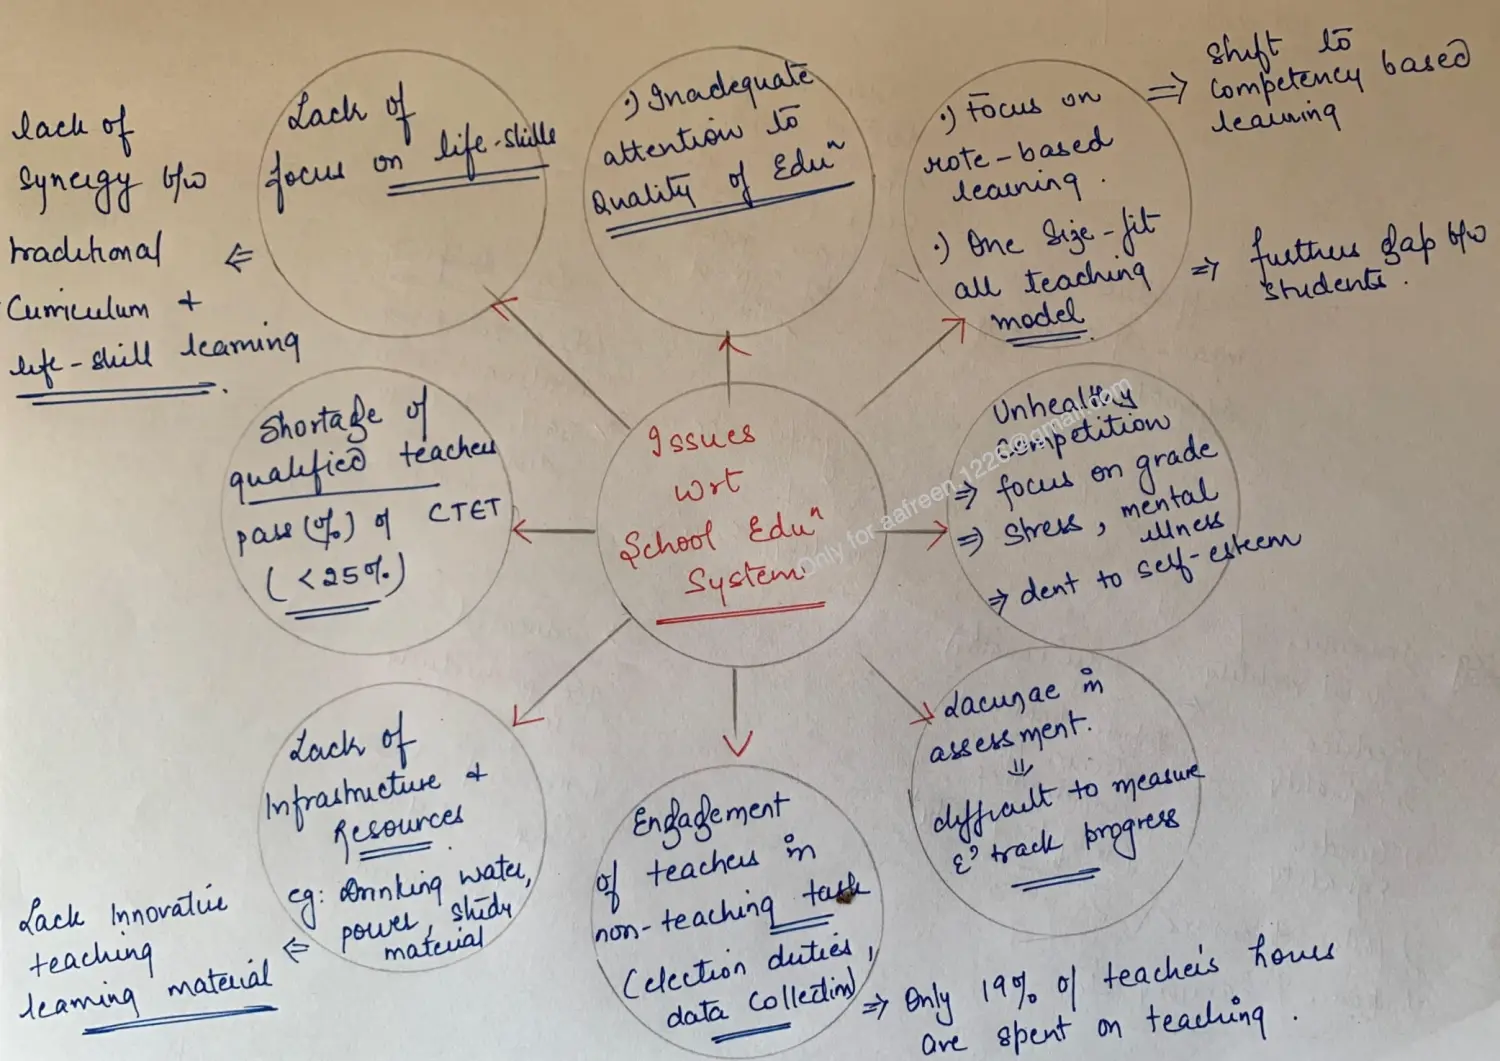 lack of
Synergy b/w
traditional
Curriculum +
life-skill learning.
⇐
Lack of
focus on life-skills
·) Inadequate
attention to
Quality of Eduⁿ
·) Focus on
rote-based
learning.
⇒ Shift to
competency based
learning
·) One Size-fit
all teaching
model.
⇒ furthers gap b/w
students.
Shortage of
qualified teachers
pass (%) of CTET
(<25%.)
Issues
wrt
School Eduⁿ
System
Unhealthy
Competition
⇒ focus on grade
⇒ Stress, mental
illness
⇒ dent to self-esteem
Lack of
Infrastructure +
Resources
eg: Drinking water,
power, study
material
⇐
Lack Innovative
teaching
learning material
Engagement
of teachers in
non-teaching task
(election duties,
data collection)
⇒ Only 19% of teacher's hours
are spent on teaching.
Lacunae in
assessment.
⇓
difficult to measure
& track progress
Only for aafreen.1226@gmail.com